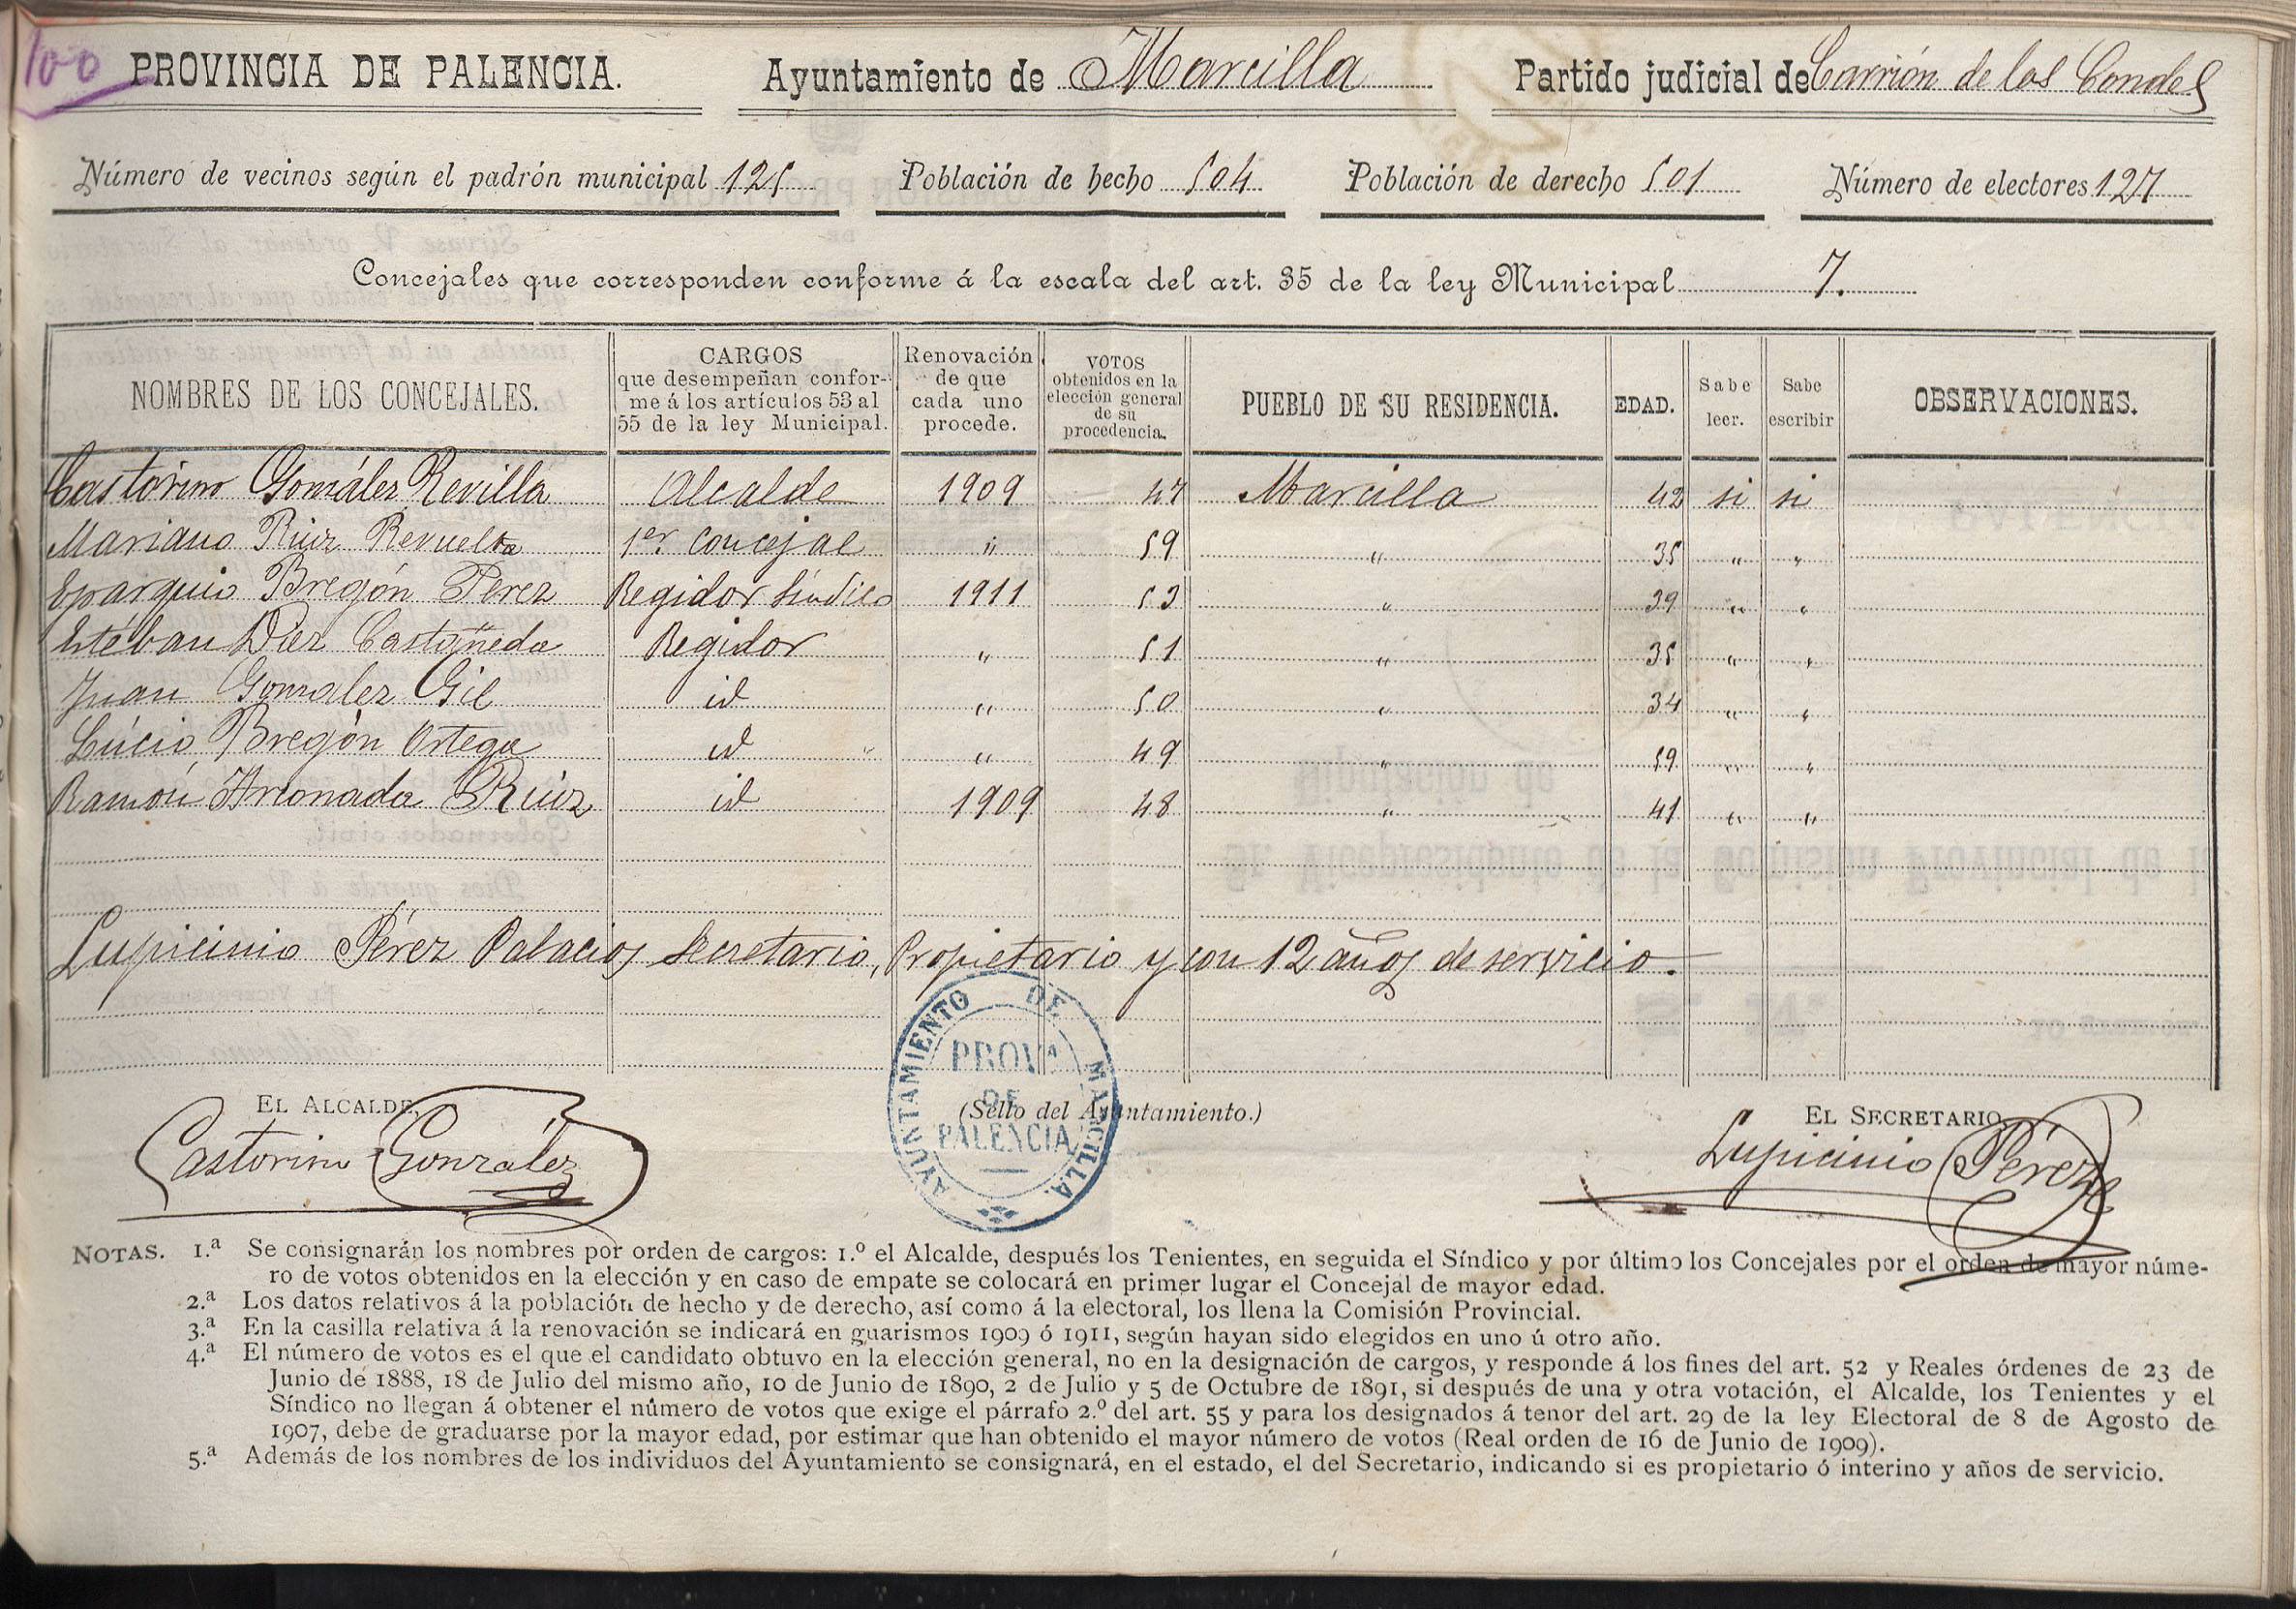 100
PROVINCIA DE PALENCIA. Ayuntamiento de Marcilla Partido judicial de Carrión de los Condes
Número de vecinos según el padrón municipal 125 Población de hecho 504 Población de derecho 501 Número de electores 127
Concejales que corresponden conforme á la escala del art. 35 de la ley Municipal 7.
NOMBRES DE LOS CONCEJALES.
CARGOS
que desempeñan confor-
me á los artículos 53 al
55 de la ley Municipal.
Renovación
de que
cada uno
procede.
VOTOS
obtenidos en la
elección general
de su
procedencia.
PUEBLO DE SU RESIDENCIA.
EDAD.
Sabe
leer.
Sabe
escribir
OBSERVACIONES.
Castorino González Revilla Alcalde 1909 47 Marcilla 42 si si
Mariano Ruiz Revuelta 1er. Concejal " 59 " 35 " "
Eparquio Bregón Perez Regidor Síndico 1911 53 " 39 " "
Estéban Diez Castañeda Regidor " 51 " 35 " "
Juan Gonzalez Gil id " 50 " 34 " "
Lúcio Bregón Ortega id " " 49 " 59 " "
Ramón Arconada Ruiz id 1909 48 " 41 " "
Lupicinio Pérez Palacios Secretario, Propietario y con 12 años de servicio.
AYUNTAMIENTO DE MARCILLA
PROVª
DE
PALENCIA
EL ALCALDE,
(Sello del Ayuntamiento.)
EL SECRETARIO,
Castorino González
Lupicinio Pérez
NOTAS. 1.ª Se consignarán los nombres por orden de cargos: 1.º el Alcalde, después los Tenientes, en seguida el Síndico y por último los Concejales por el orden de mayor núme-
ro de votos obtenidos en la elección y en caso de empate se colocará en primer lugar el Concejal de mayor edad.
2.ª Los datos relativos á la población de hecho y de derecho, así como á la electoral, los llena la Comisión Provincial.
3.ª En la casilla relativa á la renovación se indicará en guarismos 1909 ó 1911, según hayan sido elegidos en uno ú otro año.
4.ª El número de votos es el que el candidato obtuvo en la elección general, no en la designación de cargos, y responde á los fines del art. 52 y Reales órdenes de 23 de
Junio de 1888, 18 de Julio del mismo año, 10 de Junio de 1890, 2 de Julio y 5 de Octubre de 1891, si después de una y otra votación, el Alcalde, los Tenientes y el
Síndico no llegan á obtener el número de votos que exige el párrafo 2.º del art. 55 y para los designados á tenor del art. 29 de la ley Electoral de 8 de Agosto de
1907, debe de graduarse por la mayor edad, por estimar que han obtenido el mayor número de votos (Real orden de 16 de Junio de 1909).
5.ª Además de los nombres de los individuos del Ayuntamiento se consignará, en el estado, el del Secretario, indicando si es propietario ó interino y años de servicio.